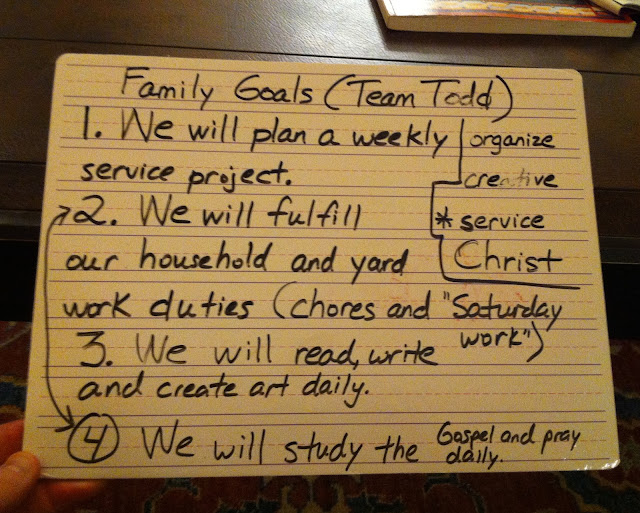 Family Goals (Team Todd)
1. We will plan a weekly
service project.
2. We will fulfill
our household and yard
work duties (chores and "Saturday
work")
3. We will read, write
and create art daily.
4 We will study the Gospel and pray
daily.
organize
creative
* service
Christ